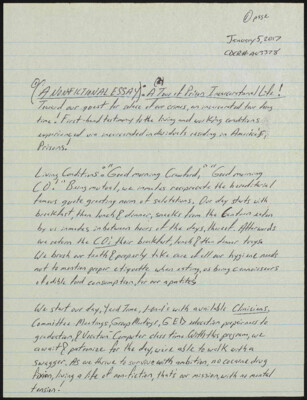 January 5, 2017
CDCR#
"A NONFICTIONAL ESSAY" - A Tour of Prison Incarcerational Life!
Toward our quest for solace of our crimes, an incarcerated tour day
time! First-hand testimony to the living and working conditions
experienced by we incarcerated individuals residing in America's
Prisons!
Living Conditions: "Good morning Crawford," "Good morning
CO." Being mutual, we inmates
famous quote greeting norm of salutations. Our day starts with
breakfast, then lunch & dinner, snacks from the Canteen
by us inmates in between hours of the days, thereof. Afterwards
we return the CO's their breakfast, lunch & then dinner trays.
We brush our teeth & properly take care of all our hygiene needs
not to mention proper etiquette when eating, as being connoisseurs
of edible food consumption, for our appetite
We start our day, Yard Time, I-and-I with available Clinicians,
Committee Meetings, Group Therapy, G.E.D. education
graduation, & Vocation Computer class time. With this program, we
await & patronize for the day, we're able to walk with a
swagger. As we thrive to survive with ambition, no creative drug
being a life of non-fiction, that's our mission with no mental
tension!